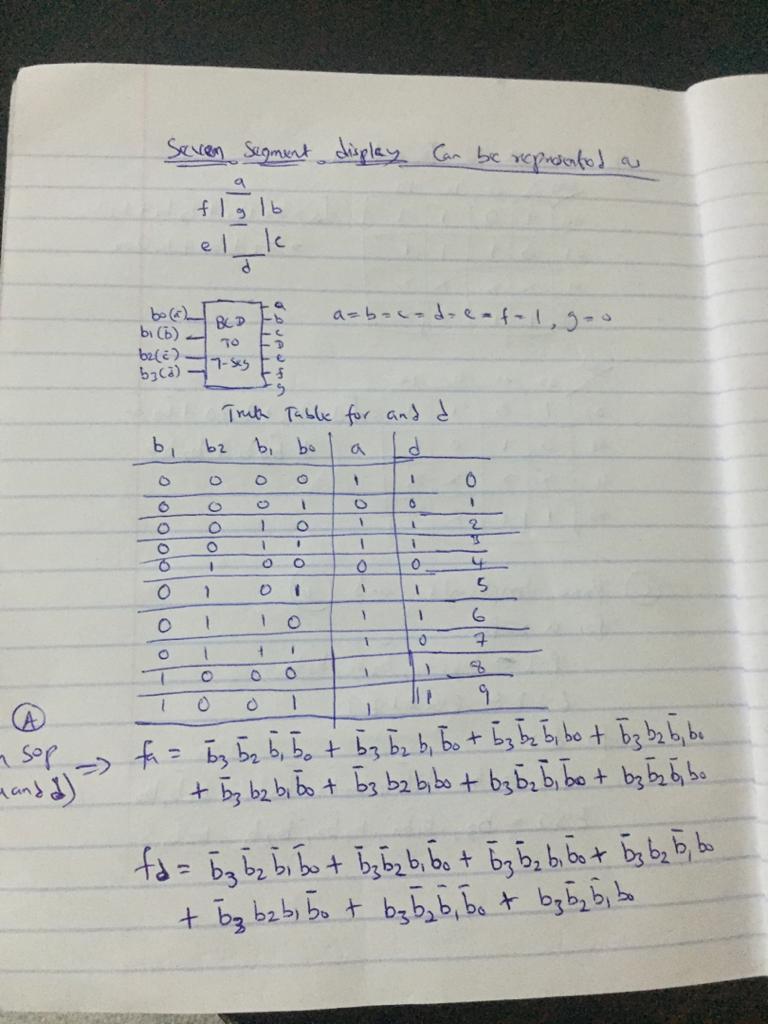 Seven Segment display Can be represented as
a
f | g | b
e | | c
d
b0(ā) BCD a
b1(b̄) TO b
b2(c̄) 7-Seg c
b3(d̄) D
e
f
g
a=b=c=d=e=f=1, g=0
Truth Table for and d
b1 b2 b1 b0 a d
0 0 0 0 1 1 0
0 0 0 1 0 0 1
0 0 1 0 1 1 2
0 0 1 1 1 1 3
0 1 0 0 0 0 4
0 1 0 1 1 1 5
0 1 1 0 1 1 6
0 1 1 1 1 0 7
1 0 0 0 1 1 8
1 0 0 1 1 1 9
A
SOP
and d) => fa = b̄3 b̄2 b̄1 b̄0 + b̄3 b̄2 b1 b̄0 + b̄3 b̄2 b̄1 b0 + b̄3 b2 b̄1 b0
+ b̄3 b2 b1 b̄0 + b̄3 b2 b1 b0 + b3 b̄2 b̄1 b̄0 + b3 b̄2 b̄1 b0
fd = b̄3 b̄2 b̄1 b̄0 + b̄3 b̄2 b1 b̄0 + b̄3 b̄2 b1 b̄0 + b̄3 b2 b̄1 b0
+ b̄3 b2 b1 b̄0 + b3 b̄2 b̄1 b̄0 + b3 b̄2 b̄1 b0